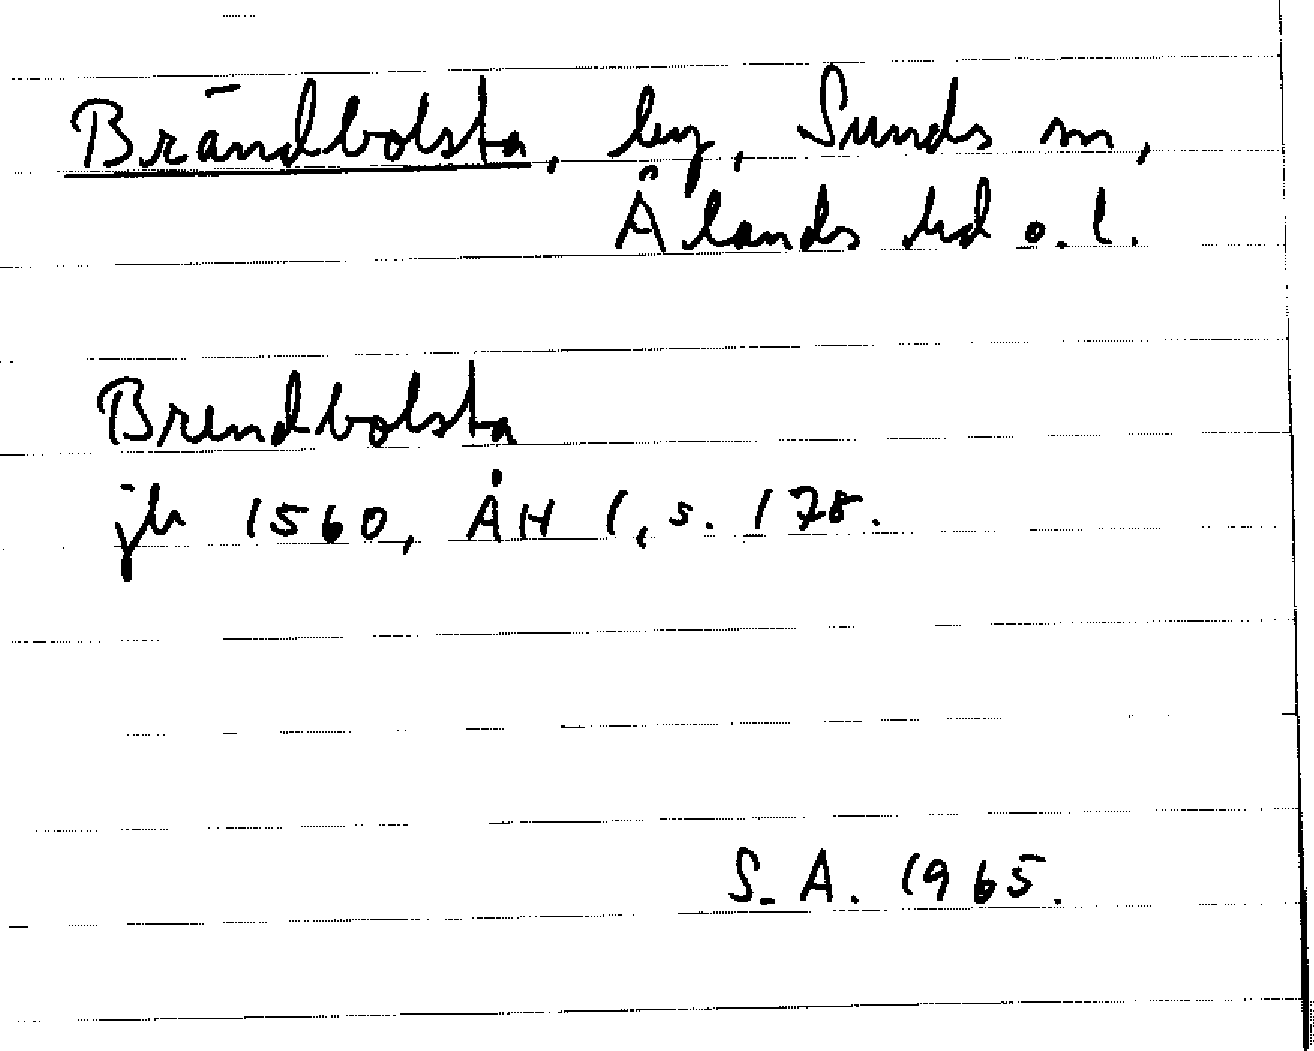 Brändbolsta, by, Sunds sn,
Ålands hd o. l.
Brendbolsta
jb 1560, ÅH 1, s. 178.
S. A. 1965.